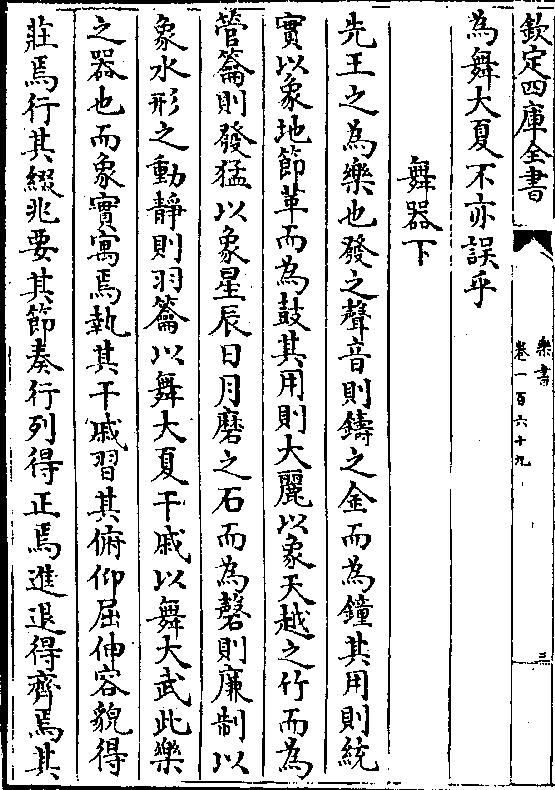 欽定四庫全書
樂書
卷一百六十九
三
為舞大夏不亦誤乎
舞器下
先王之為樂也發之聲音則鑄之金而為鐘其用則統
實以象地節革而為鼓其用則大麗以象天越之竹而為
管籥則發猛以象星辰日月磨之石而為磬則廉制以
象水形之動靜則羽籥以舞大夏干戚以舞大武此樂
之器也而象實寓焉執其干戚習其俯仰屈伸容貌得
莊焉行其綴兆要其節奏行列得正焉進退得齊焉其